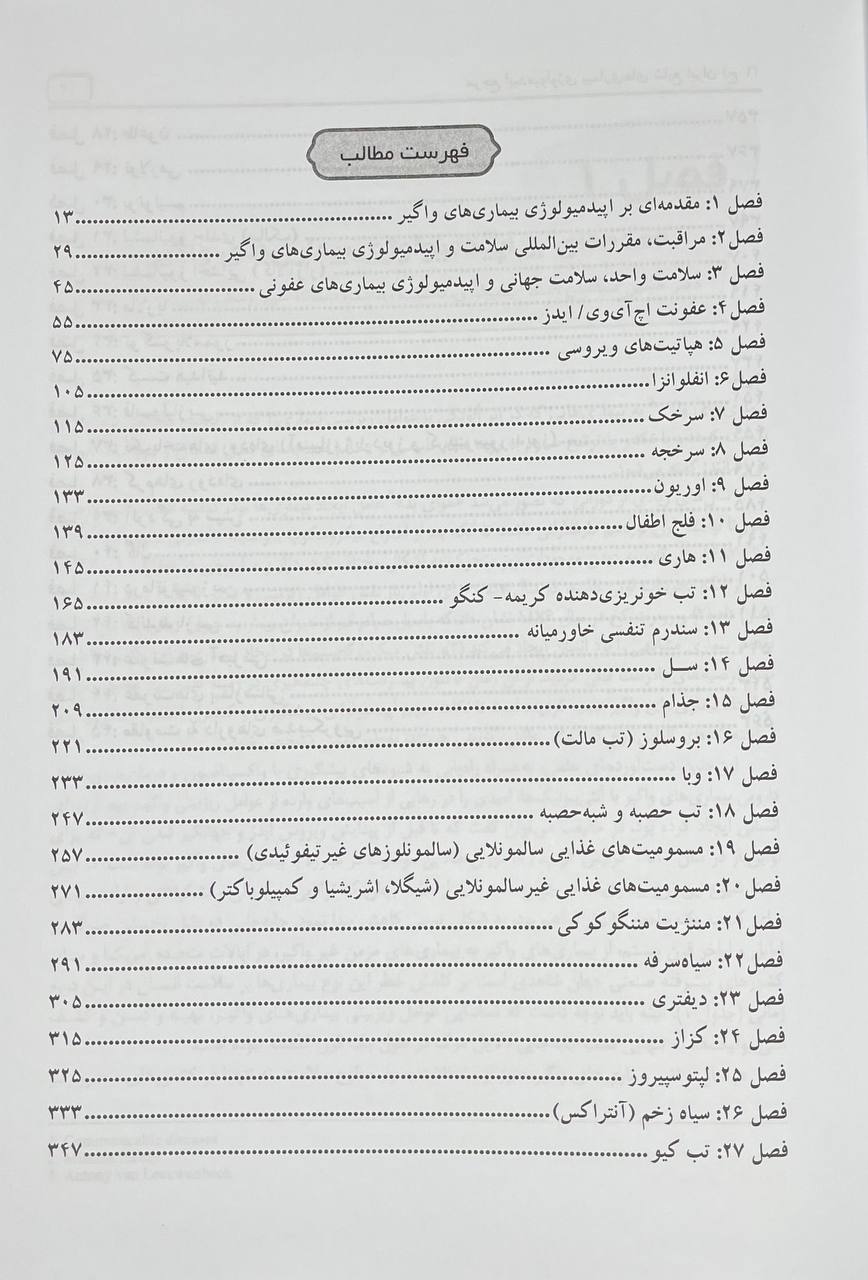 فهرست مطالب
فصل ۱: مقدمه‌ای بر اپیدمیولوژی بیماری‌های واگیر ........ ۱۳
فصل۲: مراقبت، مقررات بین‌المللی سلامت و اپیدمیولوژی بیماری‌های واگیر ........ ۲۹
فصل ۳: سلامت واحد، سلامت جهانی و اپیدمیولوژی بیماری‌های عفونی ........ ۴۵
فصل۴: عفونت اچ‌آی‌وی/ ایدز ........ ۵۵
فصل ۵: هپاتیت‌های ویروسی ........ ۷۵
فصل۶: انفلوانزا ........ ۱۰۵
فصل ۷: سرخک ........ ۱۱۵
فصل ۸: سرخجه ........ ۱۲۵
فصل ۹: اوریون ........ ۱۳۳
فصل ۱۰: فلج اطفال ........ ۱۳۹
فصل ۱۱: هاری ........ ۱۴۵
فصل ۱۲: تب خونریزی‌دهنده کریمه- کنگو ........ ۱۶۵
فصل ۱۳: سندرم تنفسی خاورمیانه ........ ۱۸۳
فصل ۱۴: ســل ........ ۱۹۱
فصل ۱۵: جذام ........ ۲۰۹
فصل ۱۶: بروسلوز (تب مالت) ........ ۲۲۱
فصل ۱۷: وبا ........ ۲۳۳
فصل ۱۸: تب حصبه و شبه‌حصبه ........ ۲۴۷
فصل ۱۹: مسمومیت‌های غذایی سالمونلایی (سالمونلوزهای غیرتیفوئیدی) ........ ۲۵۷
فصل۲۰: مسمومیت‌های غذایی غیرسالمونلایی (شیگلا، اشریشیا و کمپیلوباکتر) ........ ۲۷۱
فصل۲۱: مننژیت مننگوکوکی ........ ۲۸۳
فصل۲۲: سیاه‌سرفه ........ ۲۹۱
فصل ۲۳: دیفتری ........ ۳۰۵
فصل ۲۴: کزاز ........ ۳۱۵
فصل ۲۵: لپتوسپیروز ........ ۳۲۵
فصل ۲۶: سیاه زخم (آنتراکس) ........ ۳۳۳
فصل ۲۷: تب کیو ........ ۳۴۷